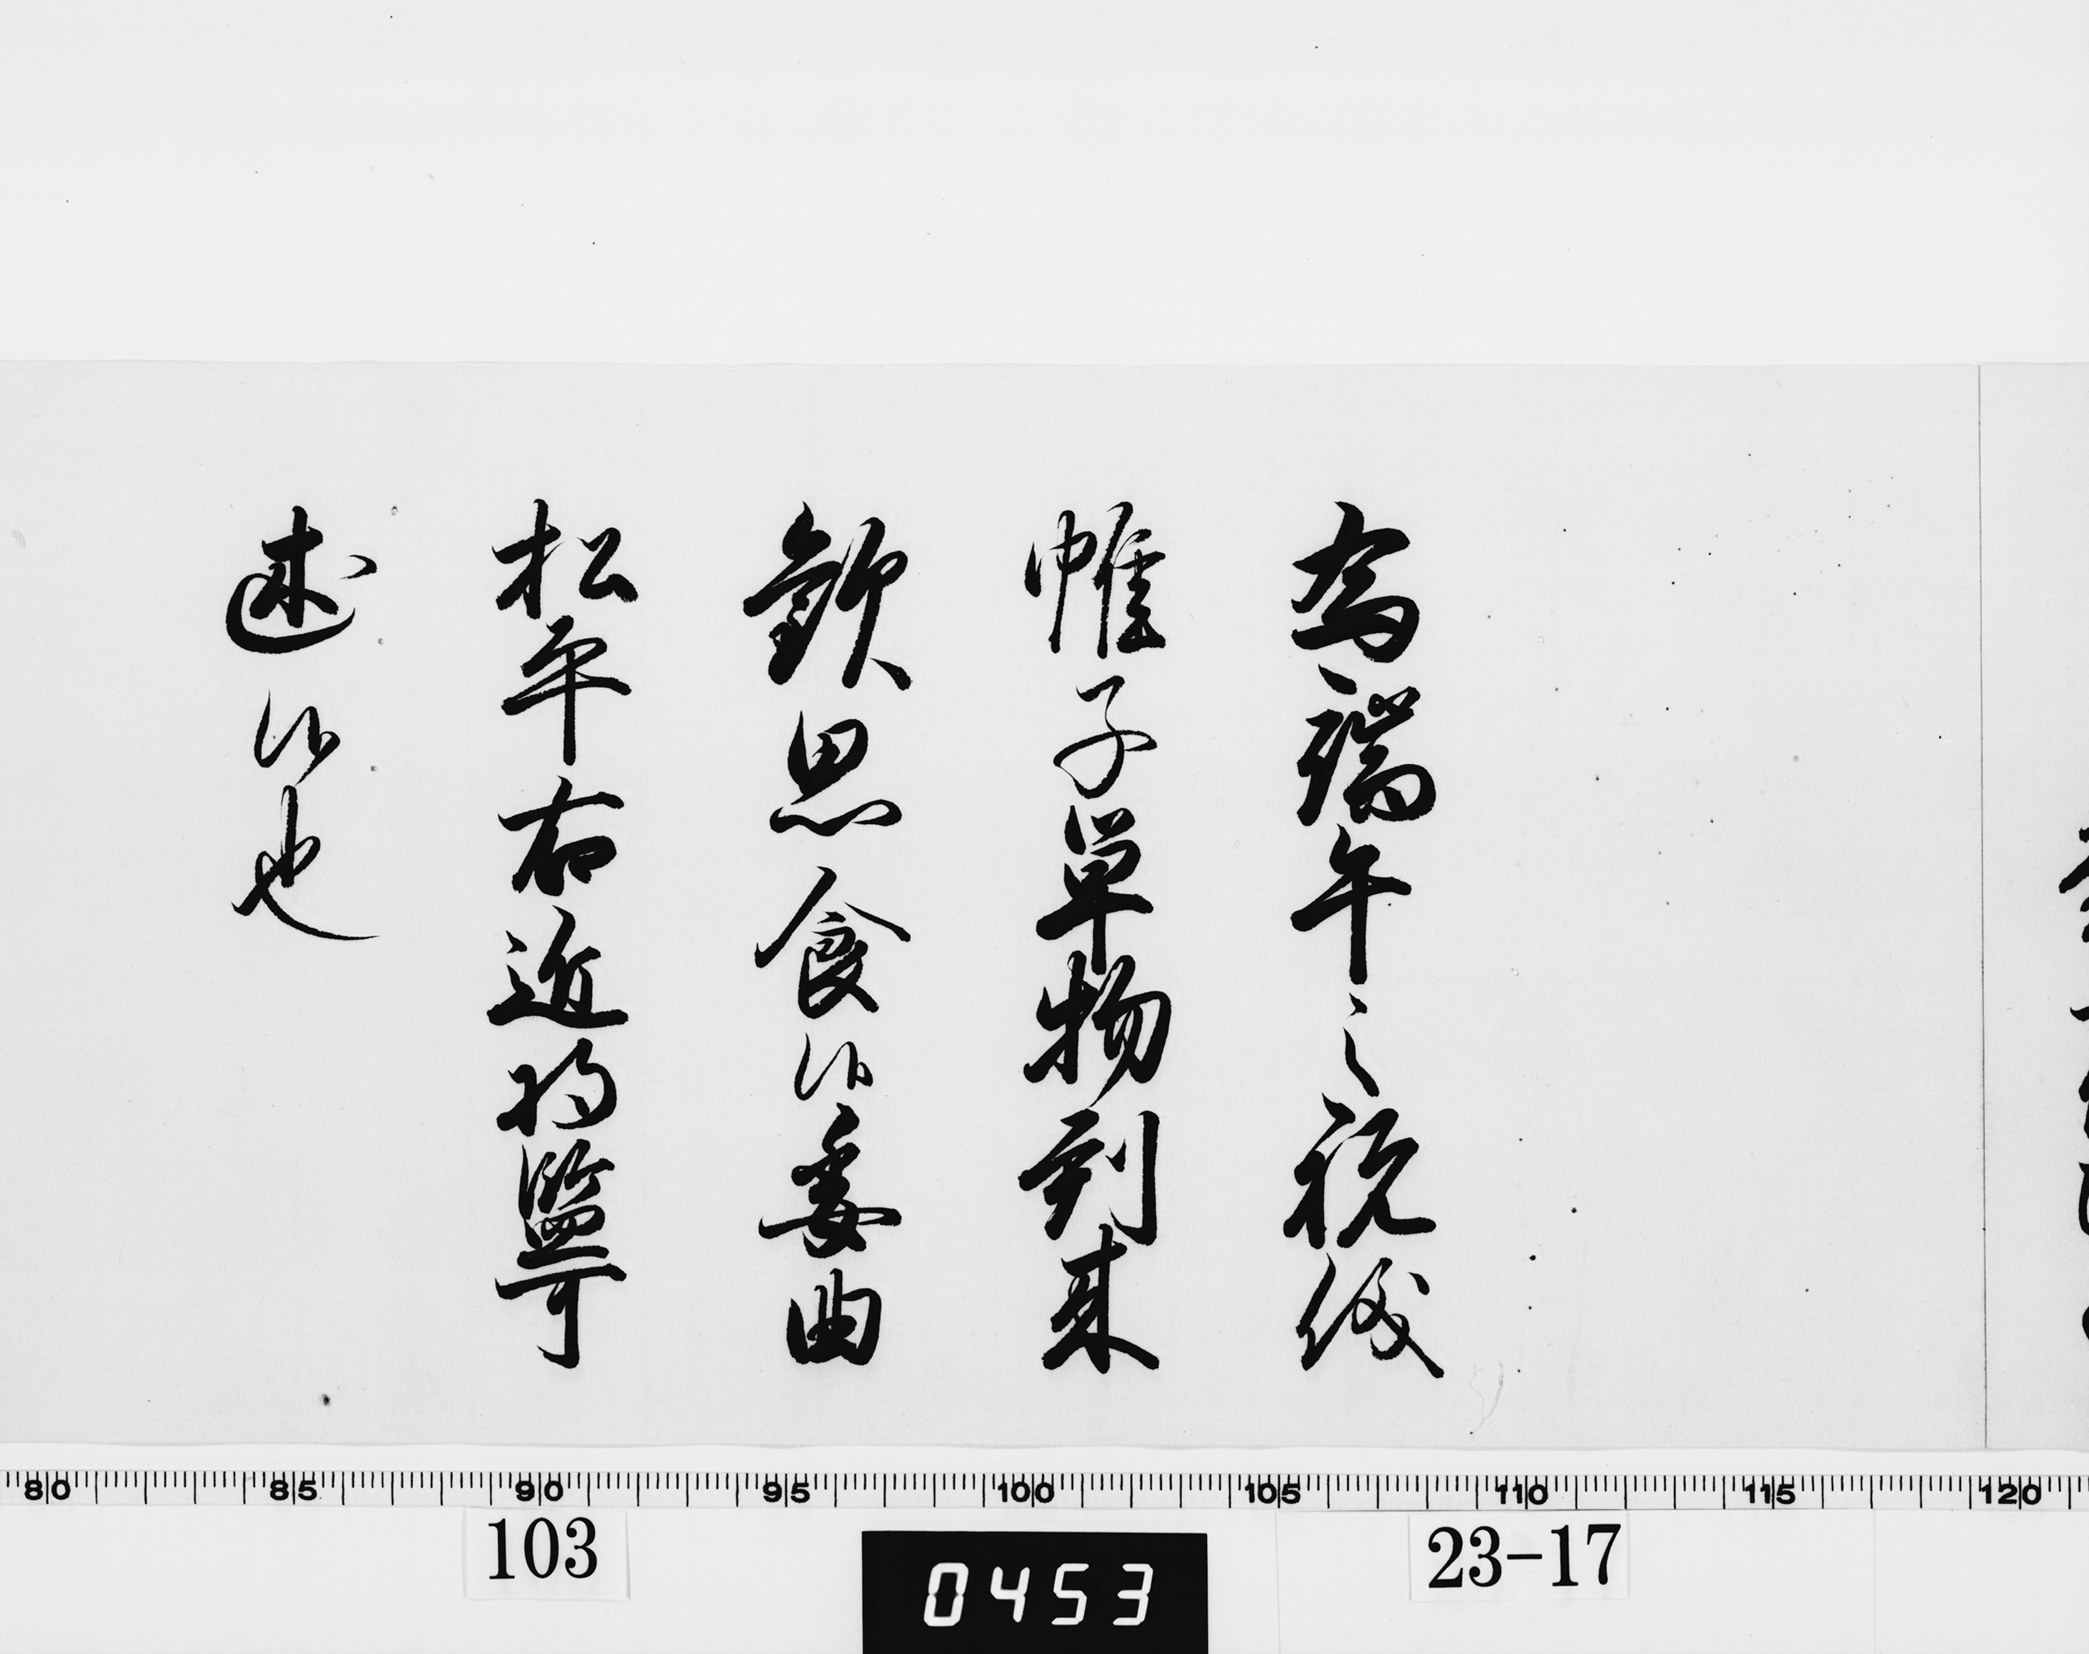 為端午之祝儀
帷子単物到来
歓思食候委曲
松平右近将監可
述候也
80 85 90 95 100 105 110 115 120
103
0453
23-17